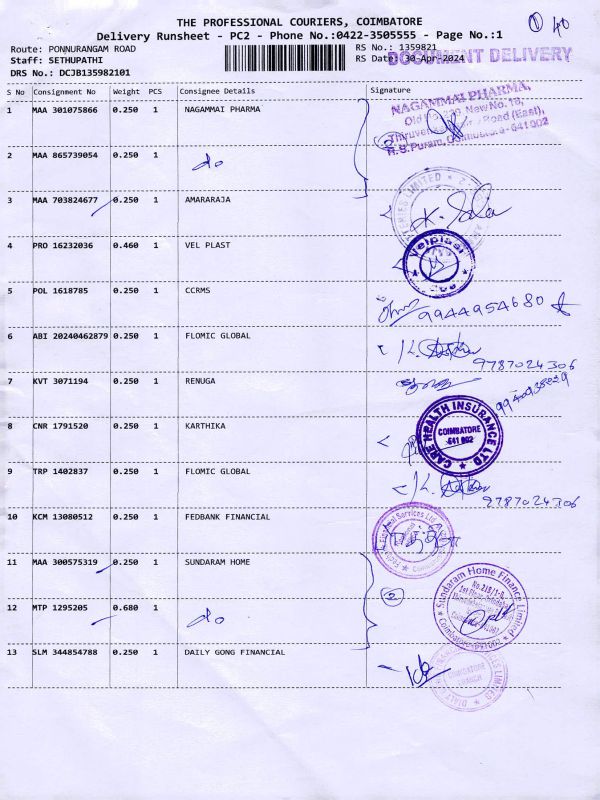 THE PROFESSIONAL COURIERS, COIMBATORE
① 40
Delivery Runsheet - PC2 - Phone No.:0422-3505555 - Page No.:1
Route: PONNURANGAM ROAD
RS No.: 1359821
Staff: SETHUPATHI
RS Date: 30-Apr-2024
DOCUMENT DELIVERY
DRS No.: DCJB135982101
S No Consignment No Weight PCS Consignee Details Signature
1 MAA 301075866 0.250 1 NAGAMMAI PHARMA
NAGAMMAI PHARMA,
R.S.Puram, Coimbatore-641 002
2 MAA 865739054 0.250 1 do
3 MAA 703824677 0.250 1 AMARARAJA
4 PRO 16232036 0.460 1 VEL PLAST
Velplast
5 POL 1618785 0.250 1 CCRMS
9944954680
6 ABI 20240462879 0.250 1 FLOMIC GLOBAL
9787024306
7 KVT 3071194 0.250 1 RENUGA
8 CNR 1791520 0.250 1 KARTHIKA
CARE HEALTH INSURANCE LTD
COIMBATORE
641 002
9 TRP 1402837 0.250 1 FLOMIC GLOBAL
9787024306
10 KCM 13080512 0.250 1 FEDBANK FINANCIAL
11 MAA 300575319 0.250 1 SUNDARAM HOME
②
Sundaram Home Finance Limited
12 MTP 1295205 0.680 1 do
13 SLM 344854788 0.250 1 DAILY GONG FINANCIAL
COIMBATORE
BRANCH